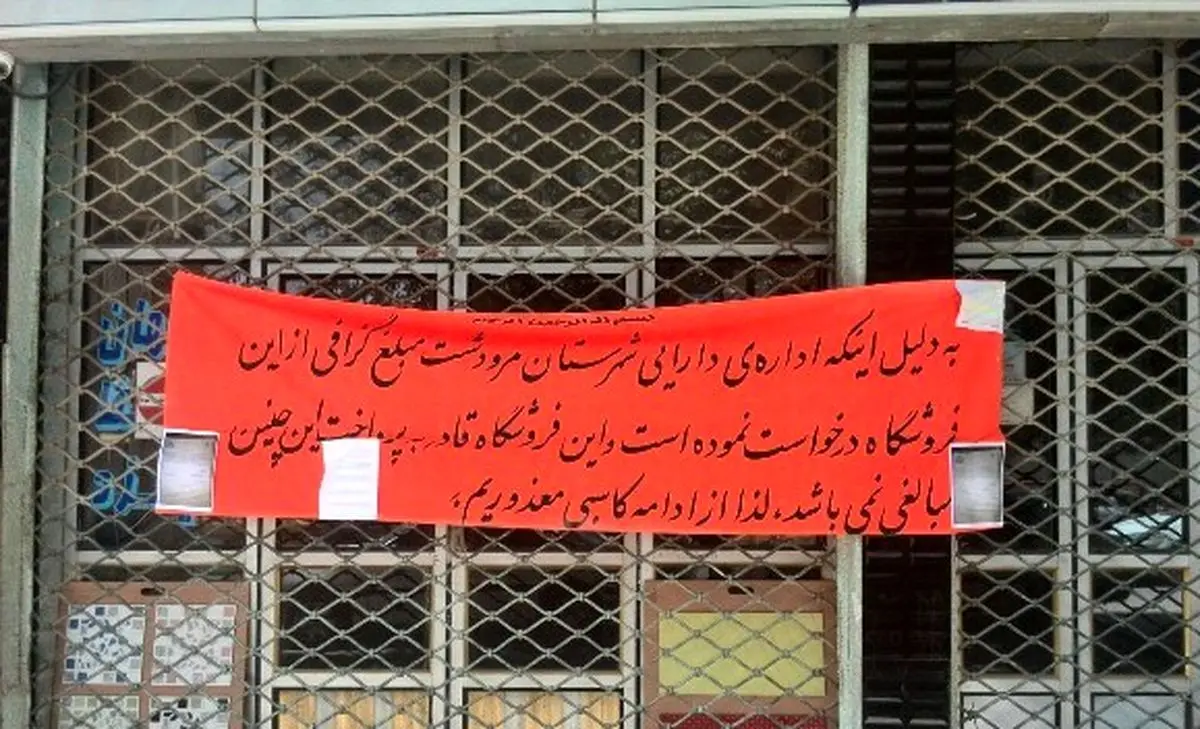 بسم الله الرحمن الرحیم
به دلیل اینکه اداره‌ی دارایی شهرستان مرودشت مبلغ گزافی از این
فروشگاه درخواست نموده است و این فروشگاه قادر به پرداخت این چنین
مبالغی نمی باشد، لذا از ادامه کاسبی معذوریم،